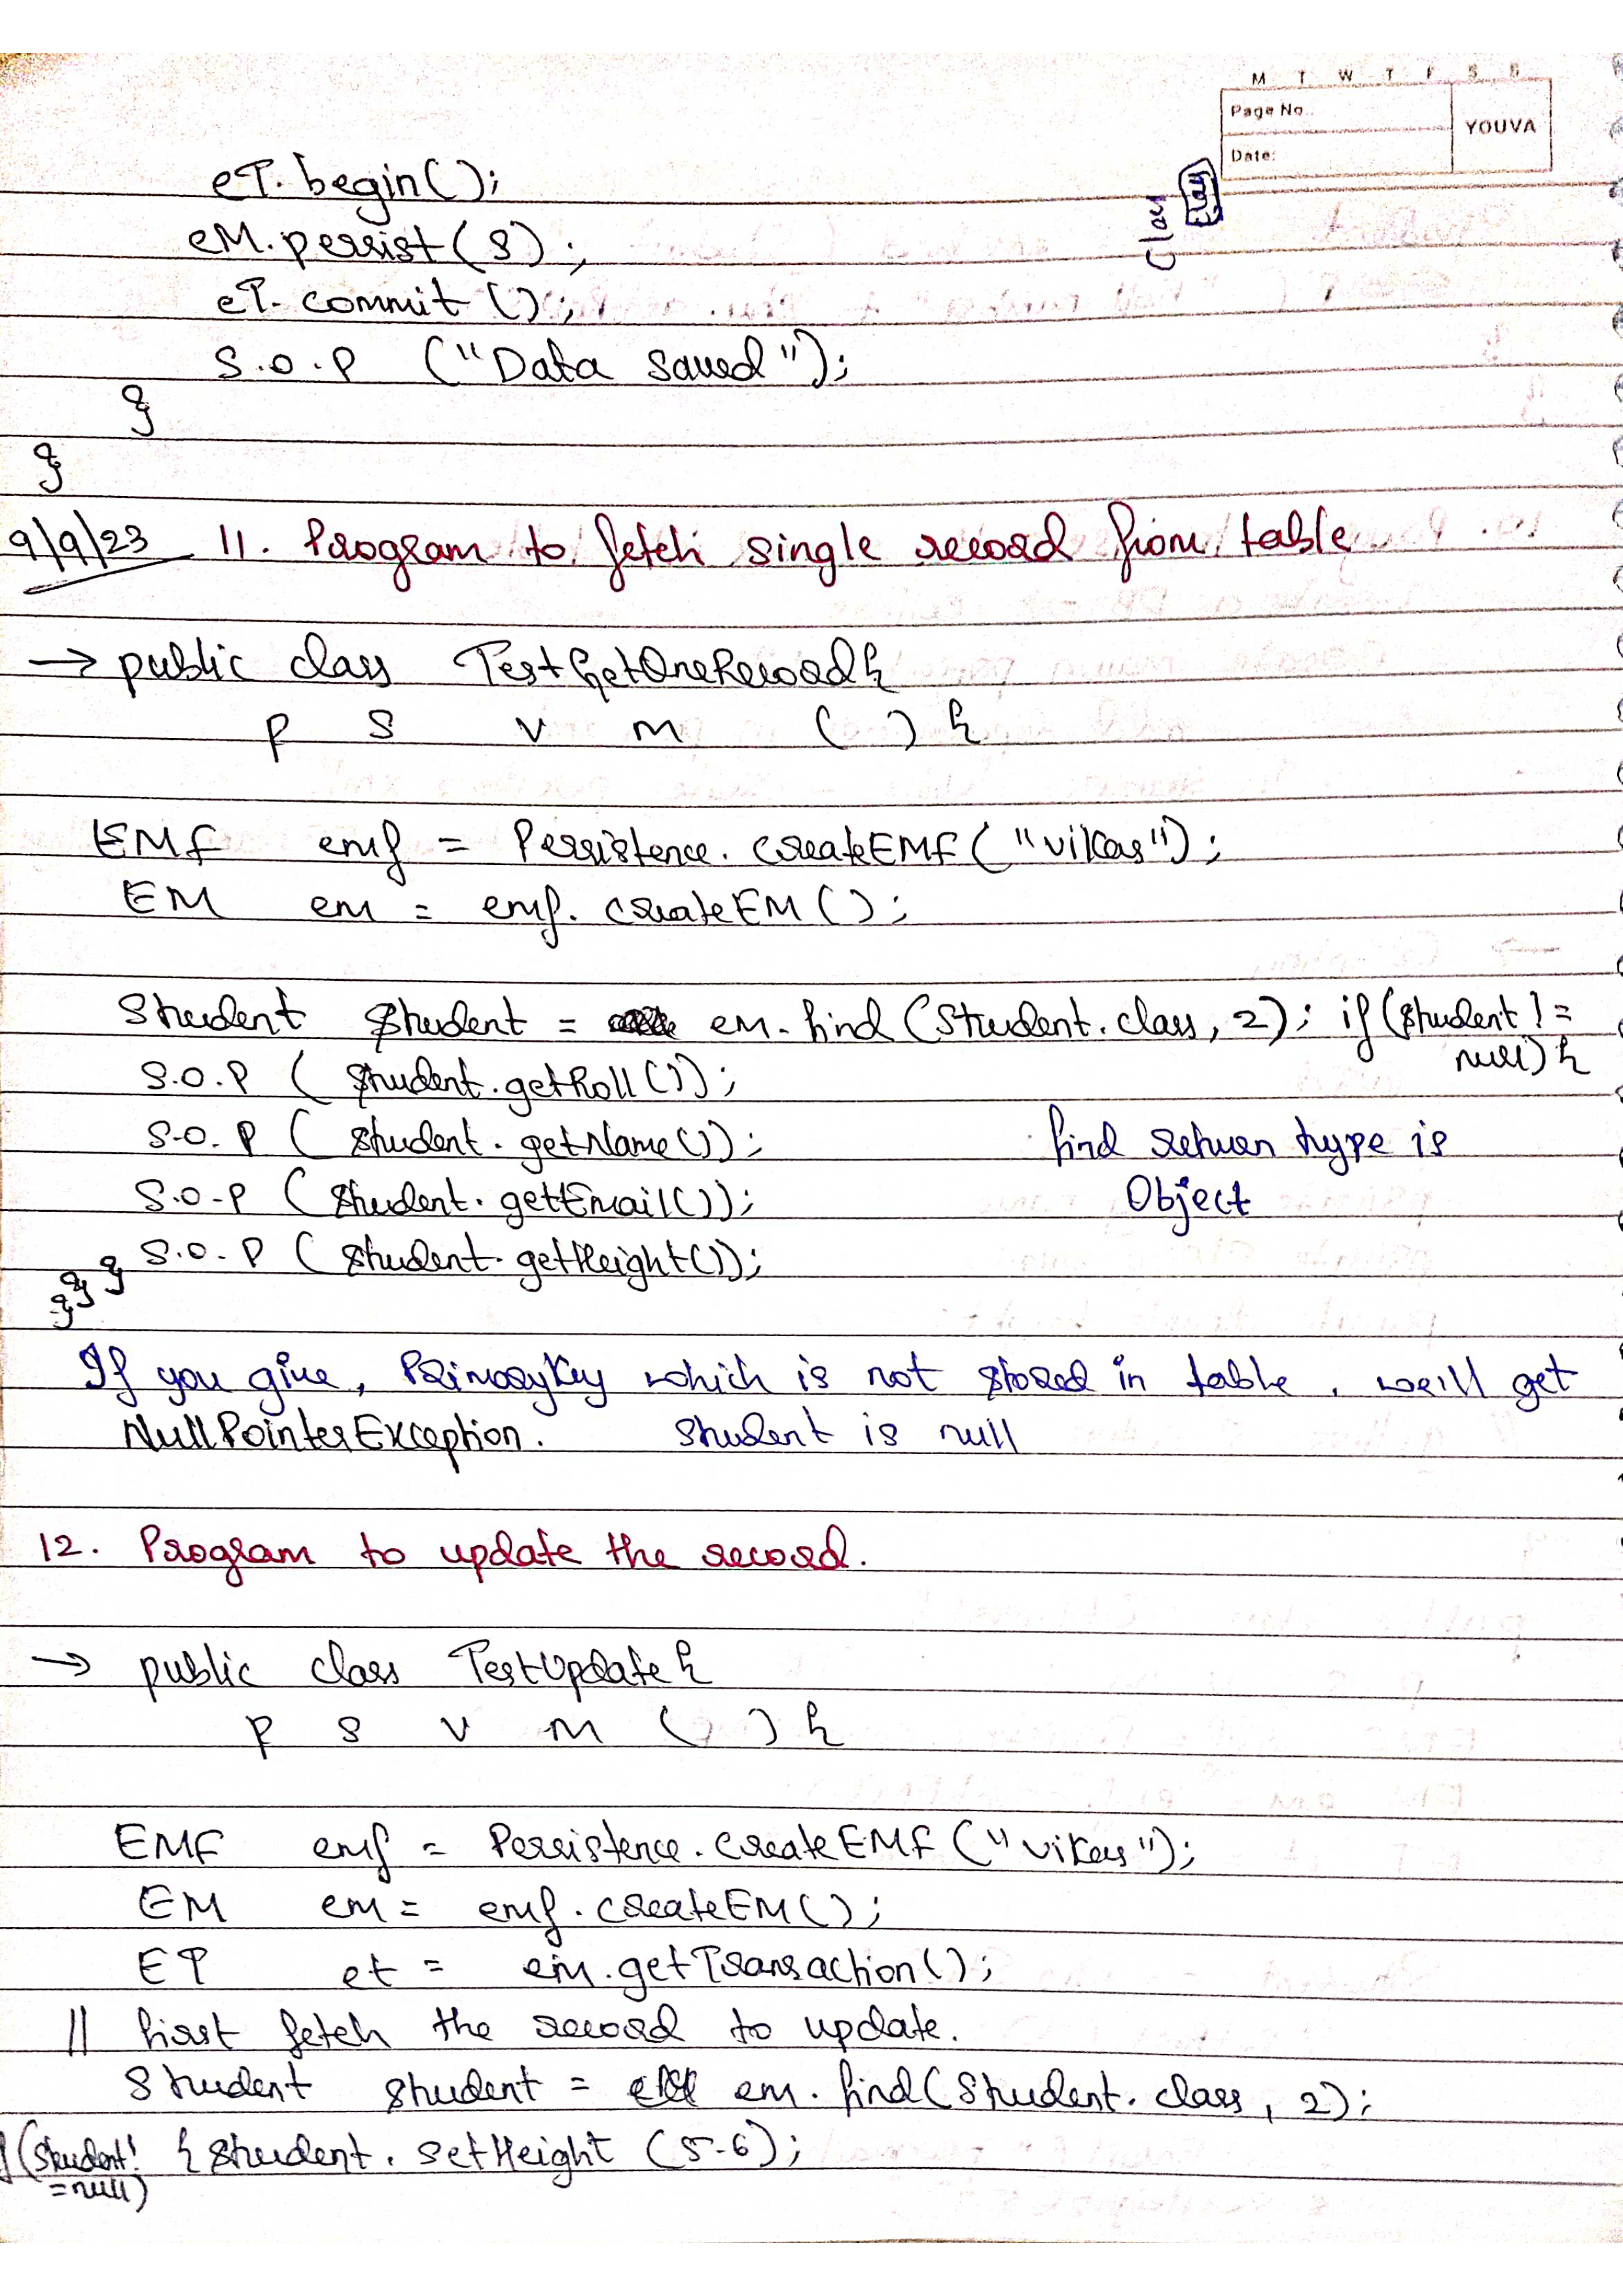 M T W T F S S
Page No.
YOUVA
Date:
eT.begin();
eM.persist(s);
eT.commit();
S.O.P ("Data saved");
}
}
9/9/23 11. Program to fetch single record from table
→ public class TestGetOneRecord{
p s v m ( ) {
EMF emf = Persistence.createEMF("vikas");
EM em = emf.createEM();
Student student = em.find(Student.class, 2); if(student !=
null){
S.O.P ( student.getRoll());
S.O.P ( student.getName());
find return type is
S.O.P ( student.getEmail());
Object
S.O.P ( student.getHeight());
} } }
If you give, PrimaryKey which is not stored in table, we'll get
NullPointerException. student is null
12. Program to update the record.
→ public class TestUpdate{
p s v m ( ) {
EMF emf = Persistence.createEMF("vikas");
EM em = emf.createEM();
ET et = em.getTransaction();
// first fetch the record to update.
Student student = em.find(Student.class, 2);
(student! { student.setHeight (5.6);
=null)